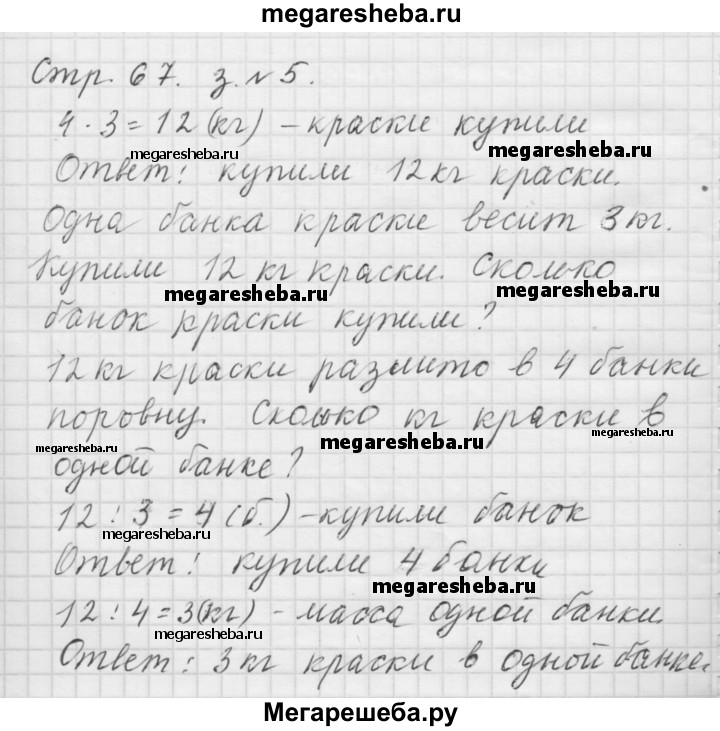 megaresheba.ru
Стр. 67. з. № 5.
4 · 3 = 12 (кг) – краски купили
megaresheba.ru
megaresheba.ru
Ответ: купили 12 кг краски.
Одна банка краски весит 3 кг.
Купили 12 кг краски. Сколько
megaresheba.ru
megaresheba.ru
банок краски купили?
12 кг краски разлито в 4 банки
поровну. Сколько кг краски в
megaresheba.ru
megaresheba.ru
megaresheba.ru
одной банке?
12 : 3 = 4 (б.) – купили банок
megaresheba.ru
Ответ: купили 4 банки
megaresheba.ru
12 : 4 = 3 (кг) – масса одной банки.
megaresheba.ru
Ответ: 3 кг краски в одной банке.
Мегарешеба.ру